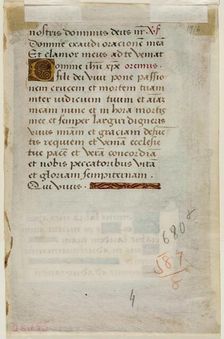 nostris dominus deus nr̃ Xp̃
Domine exaudi oracione mea
Et clamor meus ad te veniat
Domine ihũ xp̃e oremus
fili dei vivi pone passio
nem crucem et mortem tuam
inter iudicium tuum et aĩaʒ
meam nunc et in hora mortis
mee et semper largiri digneris
vivis miam et graciam defuc
tis requiem et veniã ecclesie
tue pacẽ et verã concordiã
et nobis peccatoribus vitã
et gloriam sempiternam.
Qui vivis.
6808
587
8
4